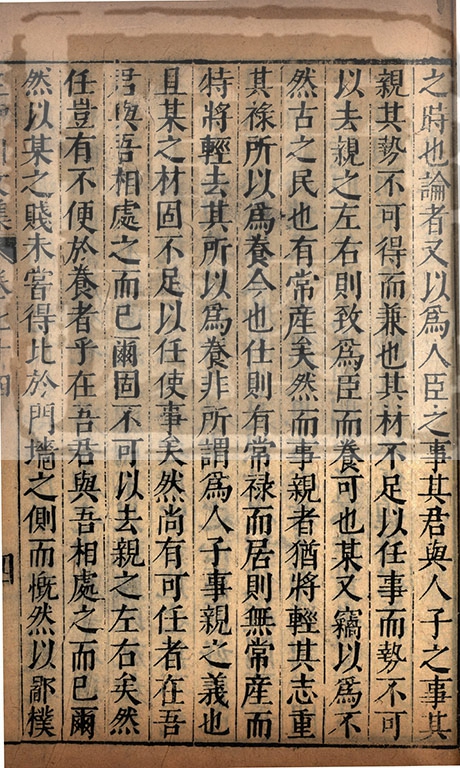 之時也論者又以爲人臣之事其君與人子之事其
親其勢不可得而兼也其材不足以任事而勢不可
以去親之左右則致爲臣而養可也某又竊以爲不
然古之民也有常産矣然而事親者猶將輕其志重
其祿所以爲養今也仕則有常禄而居則無常産而
特將輕去其所以爲養非所謂爲人子事親之義也
且某之材固不足以任使事矣然尚有可任者在吾
君與吾相處之而已爾固不可以去親之左右矣然
任豈有不便於養者乎在吾君與吾相處之而已爾
然以某之賤未嘗得比於門墻之側而慨然以鄙樸
文集 卷七十四 四